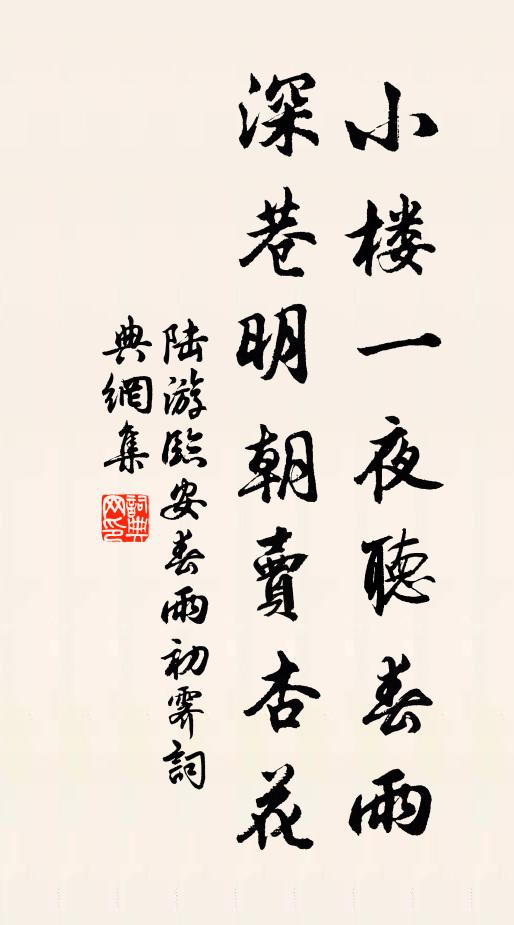 小楼一夜聽春雨
深巷明朝賣杏花
陆游臨安春雨初霽詞
典網集
詞典
网印